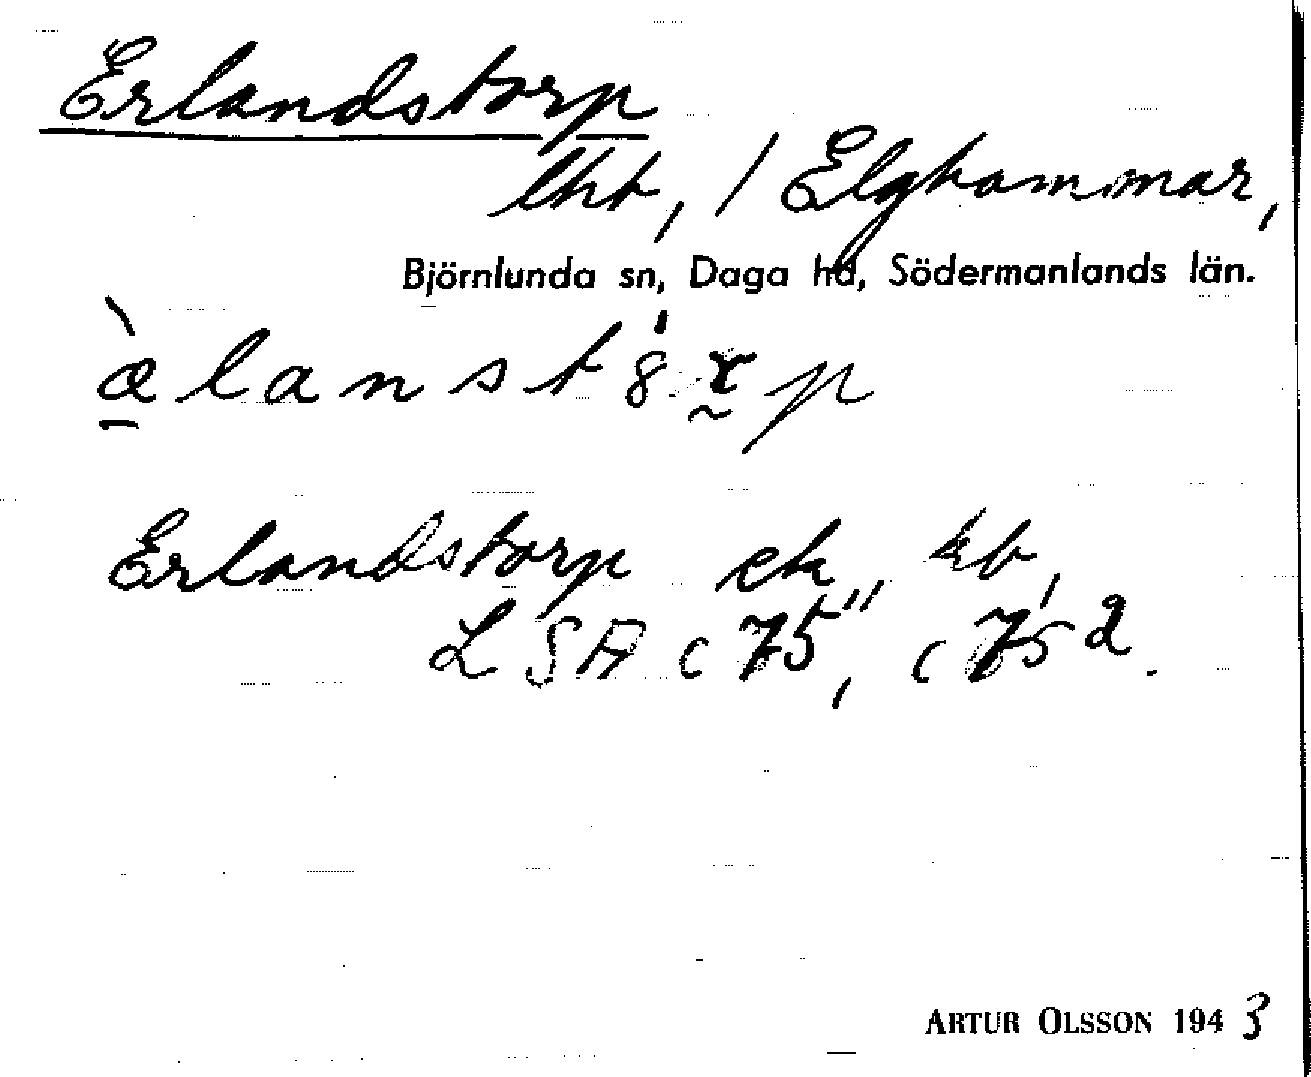 Erlandstorp
lht, / Elghammar,
Björnlunda sn, Daga hd, Södermanlands län.
æ̠̀lanst8́r̰p
Erlandstorp ek, kb,
LSA c 75", c 75 2.
ARTUR OLSSON 1943